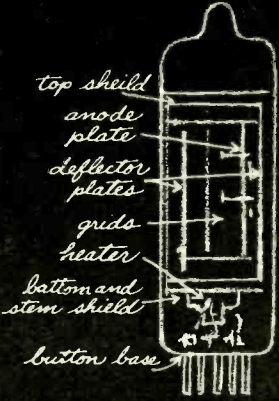 top sheild
anode
plate
deflector
plates
grids
heater
bottom and
stem shield
button base